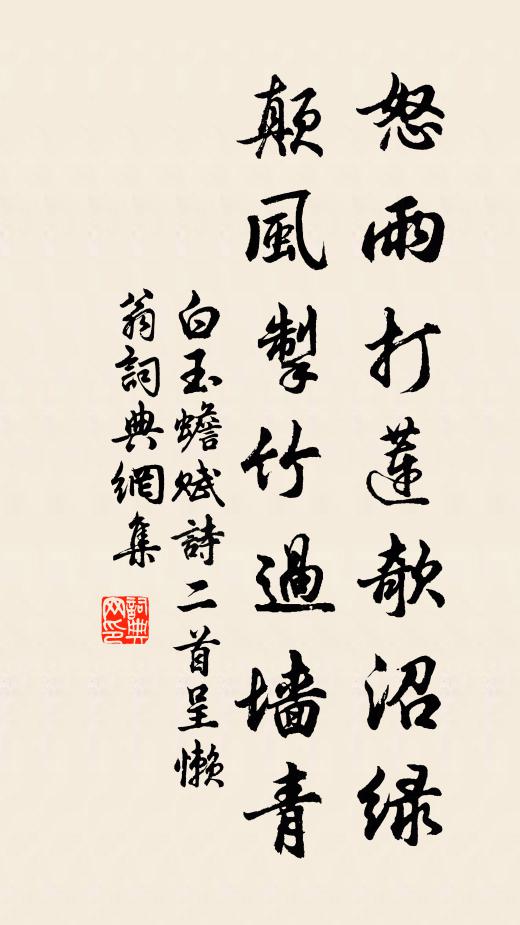 怒雨打蓮欹沼绿
颠風掣竹過墙青
白玉蟾赋詩二首呈懒
翁詞典網集
詞典网印